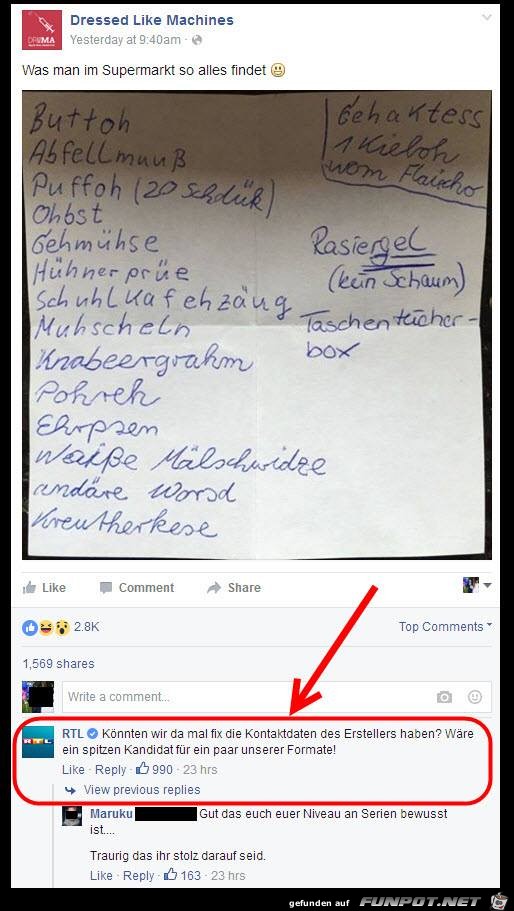 Dressed Like Machines
Yesterday at 9:40am ·
Was man im Supermarkt so alles findet
Buttoh
Abfellmuuß
Puffoh (20 Schdük)
Ohbst
Gehmühse
Hühnerprüe
Schuhlkafehzäug
Muhscheln
Knabeergrahm
Pohreh
Ehrpsen
Weiße Mälschwidze
andäre Worsd
Kreutherkese
Gehaktess
1 Kieloh
vom Flaischo
Rasiergel
(kein Schaum)
Taschentücher-
box
Like Comment Share
2.8K Top Comments
1,569 shares
Write a comment...
RTL Könnten wir da mal fix die Kontaktdaten des Erstellers haben? Wäre
ein spitzen Kandidat für ein paar unserer Formate!
Like · Reply · 990 · 23 hrs
View previous replies
Maruku Gut das euch euer Niveau an Serien bewusst
ist....
Traurig das ihr stolz darauf seid.
Like · Reply · 163 · 23 hrs
gefunden auf FUNPOT.NET